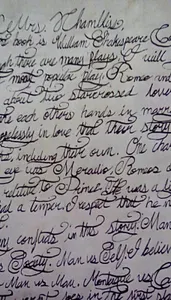 Mrs. Chambliss,
e book is William Shakespeare
gh there are many plays I will
most popular play, Romeo and
about two starcrossed love
e each others hands in marr
opelessly in love that their story
, including their own. One cha
was Mercutio, Romeos
relative to Prince. He was a l
ad a temper. I respect that he
conflicts in the story. Man
Society. Man vs. Self. I believe
Man vs. Man. Montague vs. C